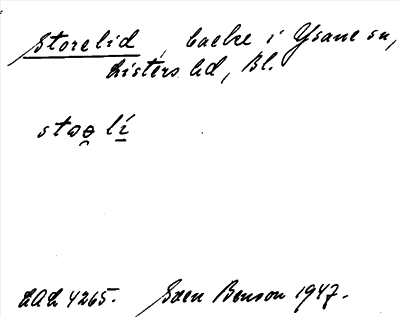 Storelid, backe i Ysane sn,
Listers hd, Bl.
stoə lí
LAL 4265. Sven Benson 1947.